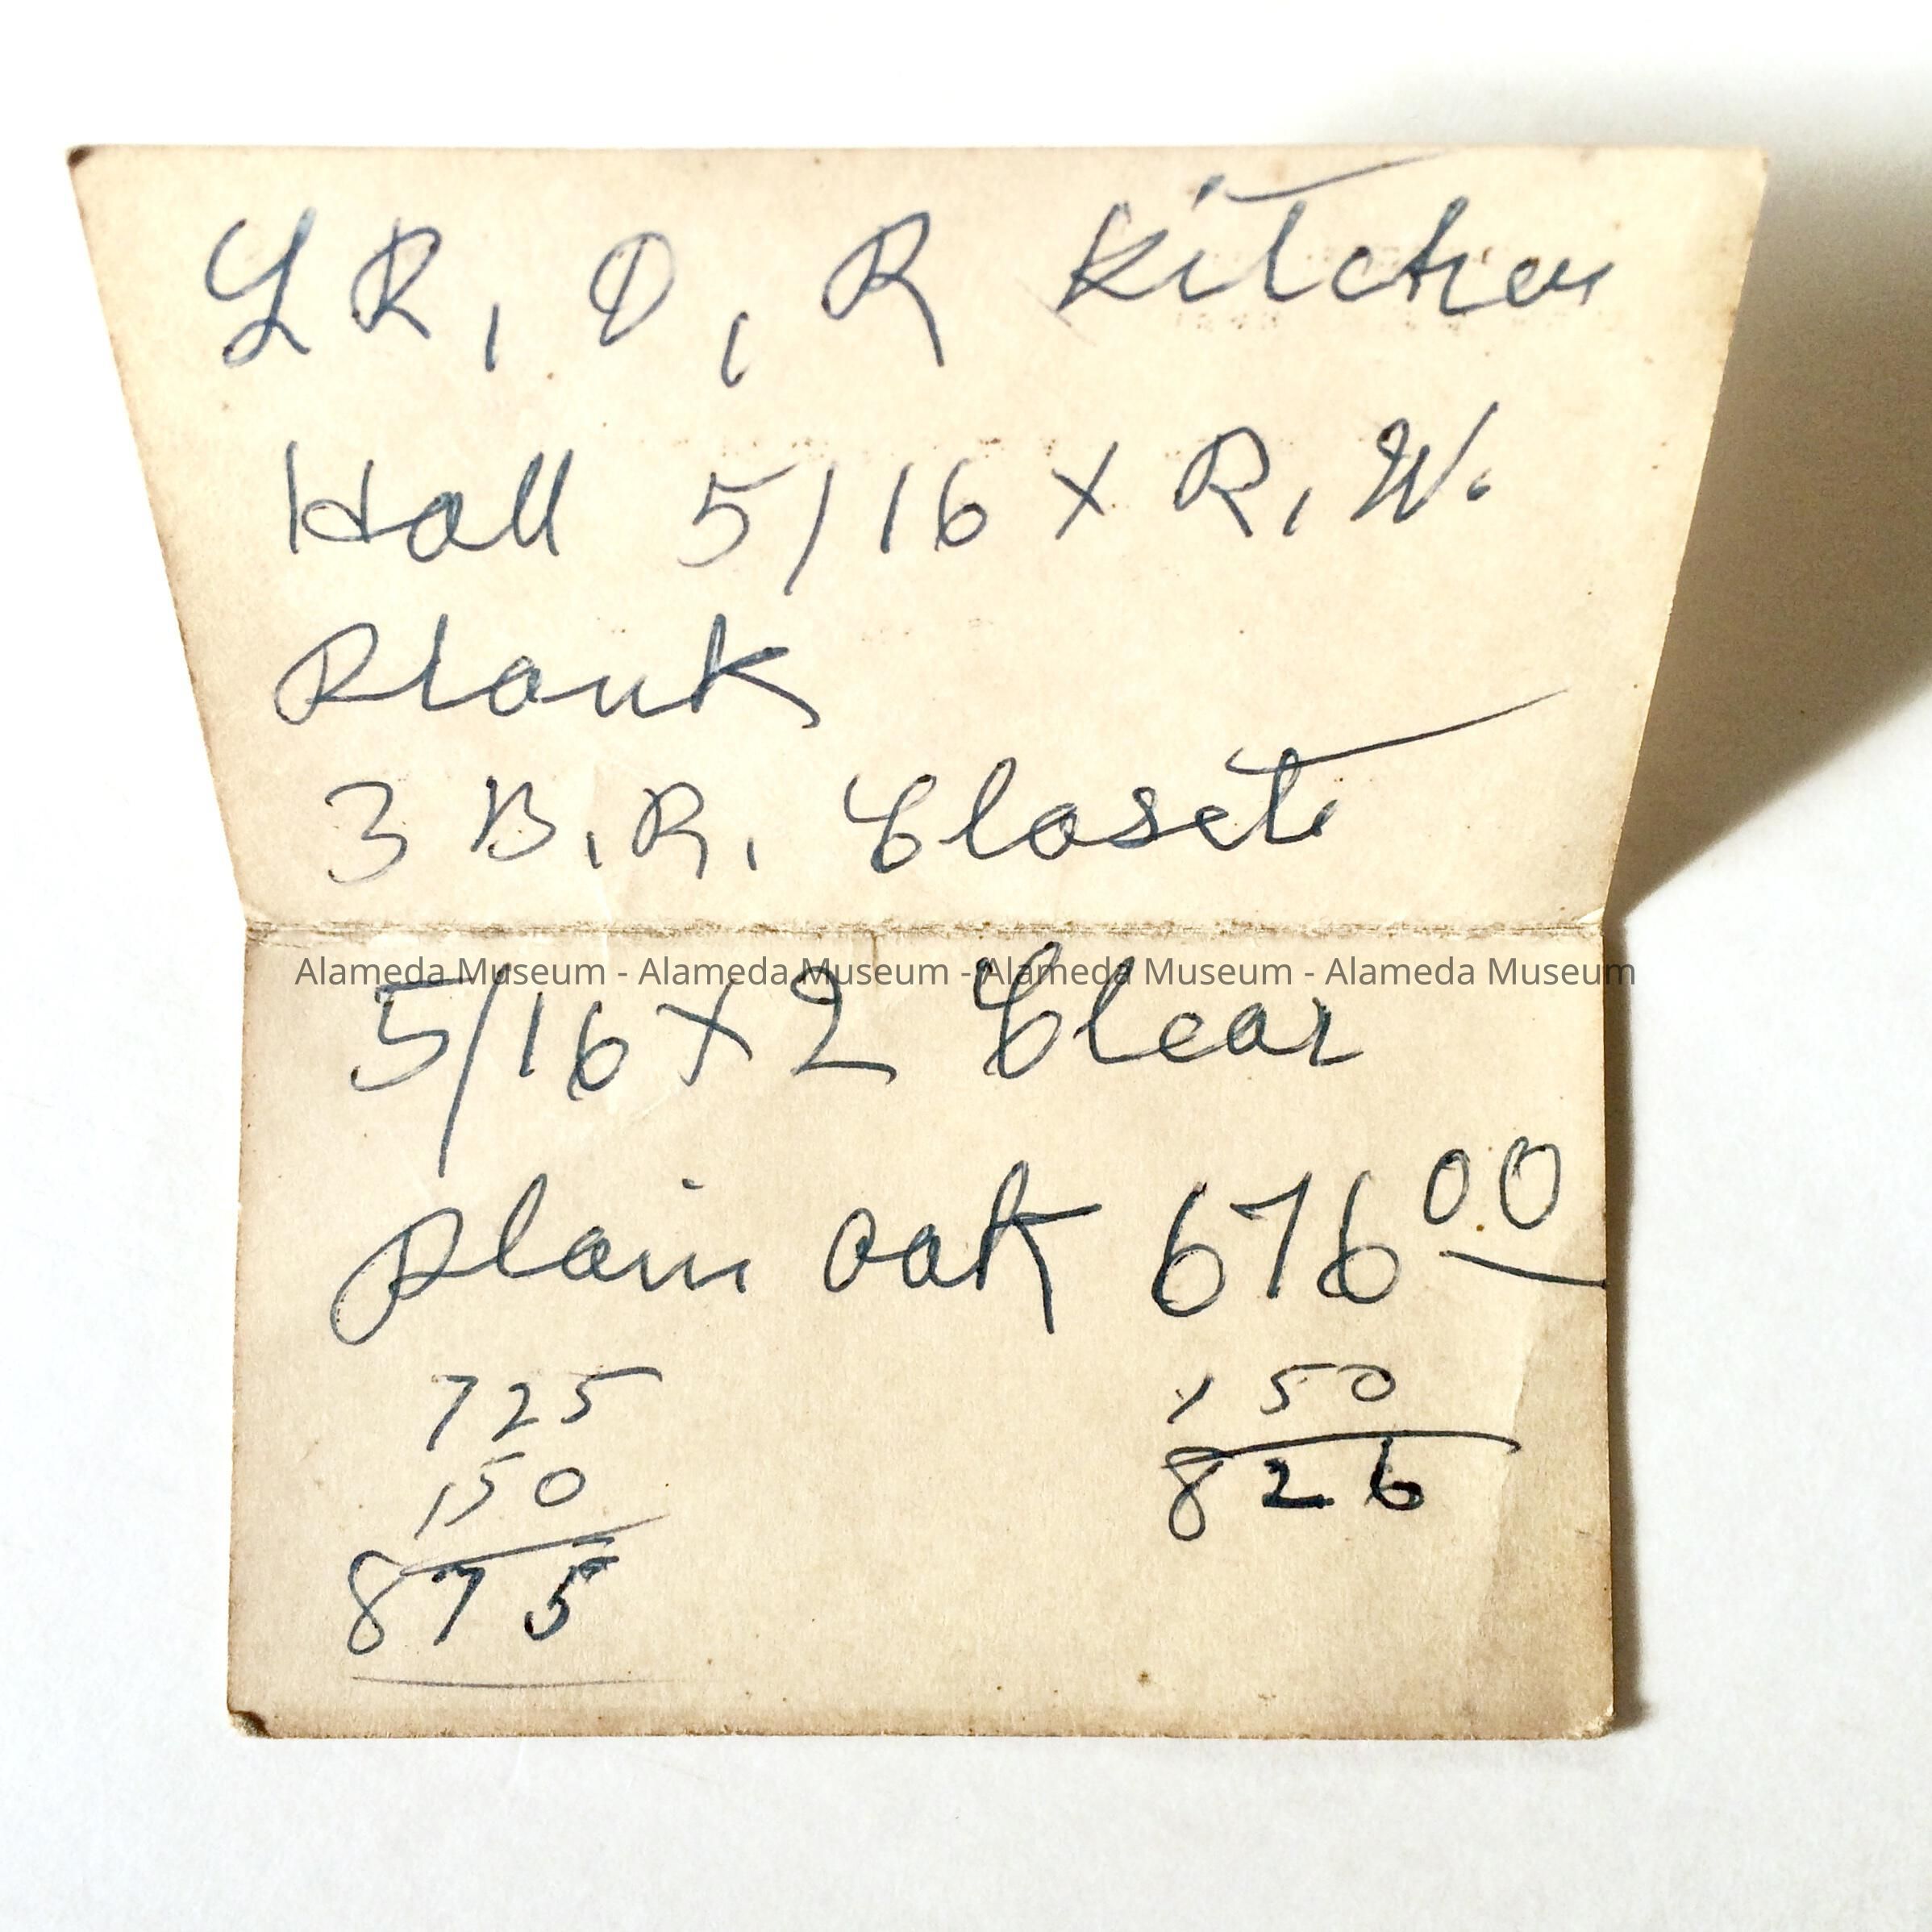 LR, D, R Kitchen
Hall 5/16 X R, W.
Plank
3 B.R. Closets
Alameda Museum - Alameda Museum - Alameda Museum - Alameda Museum
5/16 X 2 Clear
plain oak 676 00
725 150
150 826
875